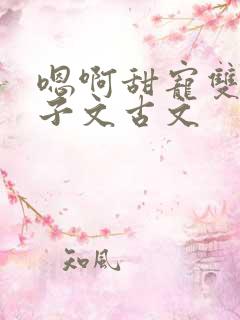 嗯啊甜寵雙
子文古文
知風